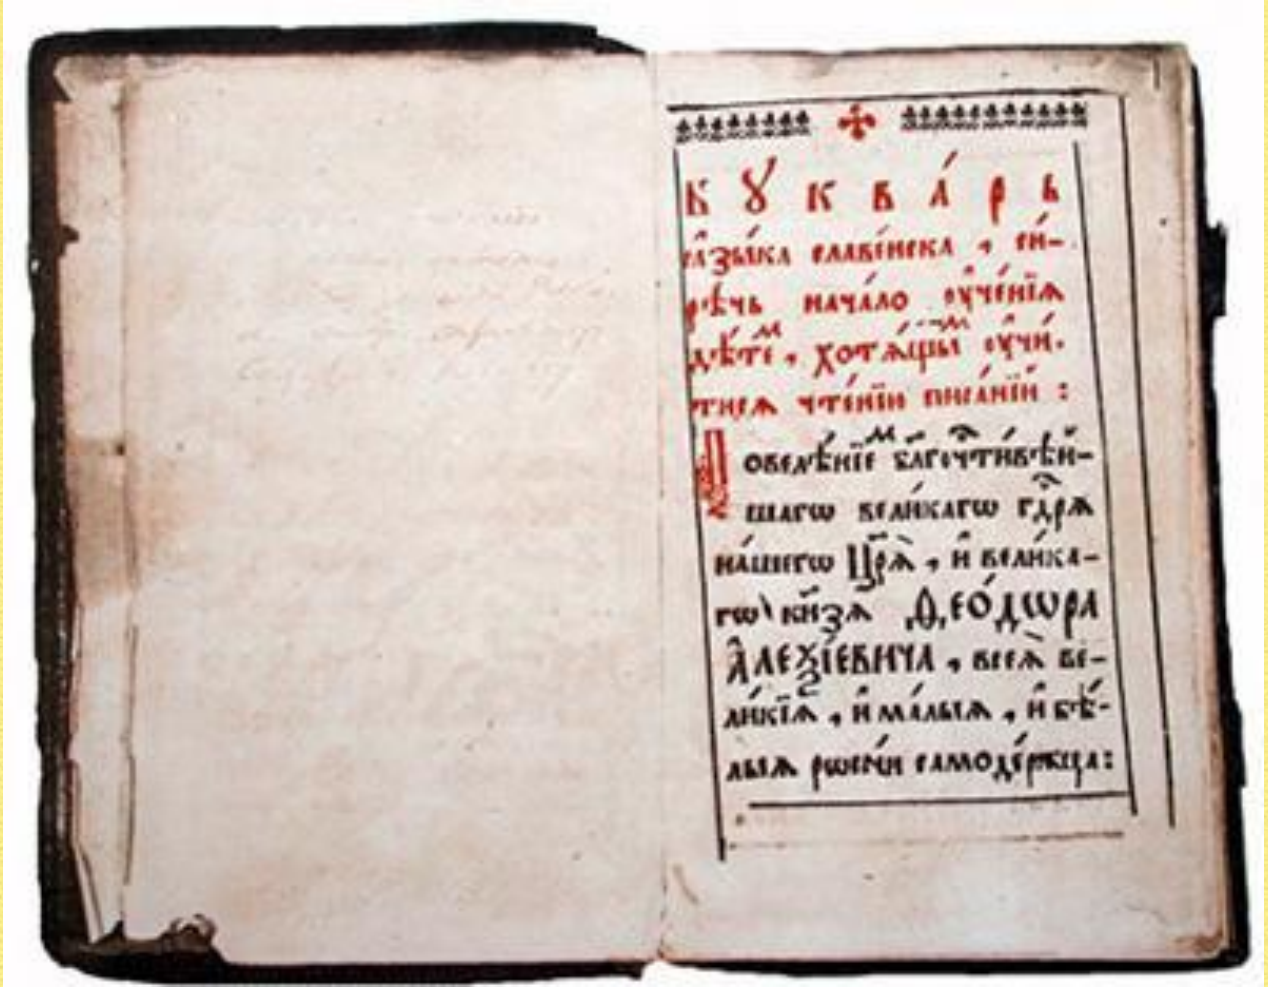 Бꙋква́рь
ꙗ҆зы́ка славе́нска, си́-
рѣчь нача́ло ᲂу҆че́нїѧ
дѣ́теⷨ, хотѧ́щыⷨ ᲂу҆чи́-
тисѧ чте́нїи писа́нїй :
Повелѣ́нїеⷨ бл҃гочⷭ҇ти́вѣй-
шагѡ вели́кагѡ гдⷭ҇рѧ
на́шегѡ Цр҃ѧ̀, и҆ вели́ка-
гѡ кн҃зѧ Ѳео́дѡра
А҆леѯі́евича, всеѧ̀ ве-
ли́кїѧ, и҆ ма́лыѧ, и҆ бѣ́-
лыѧ рѡссі́и самоде́ржца :